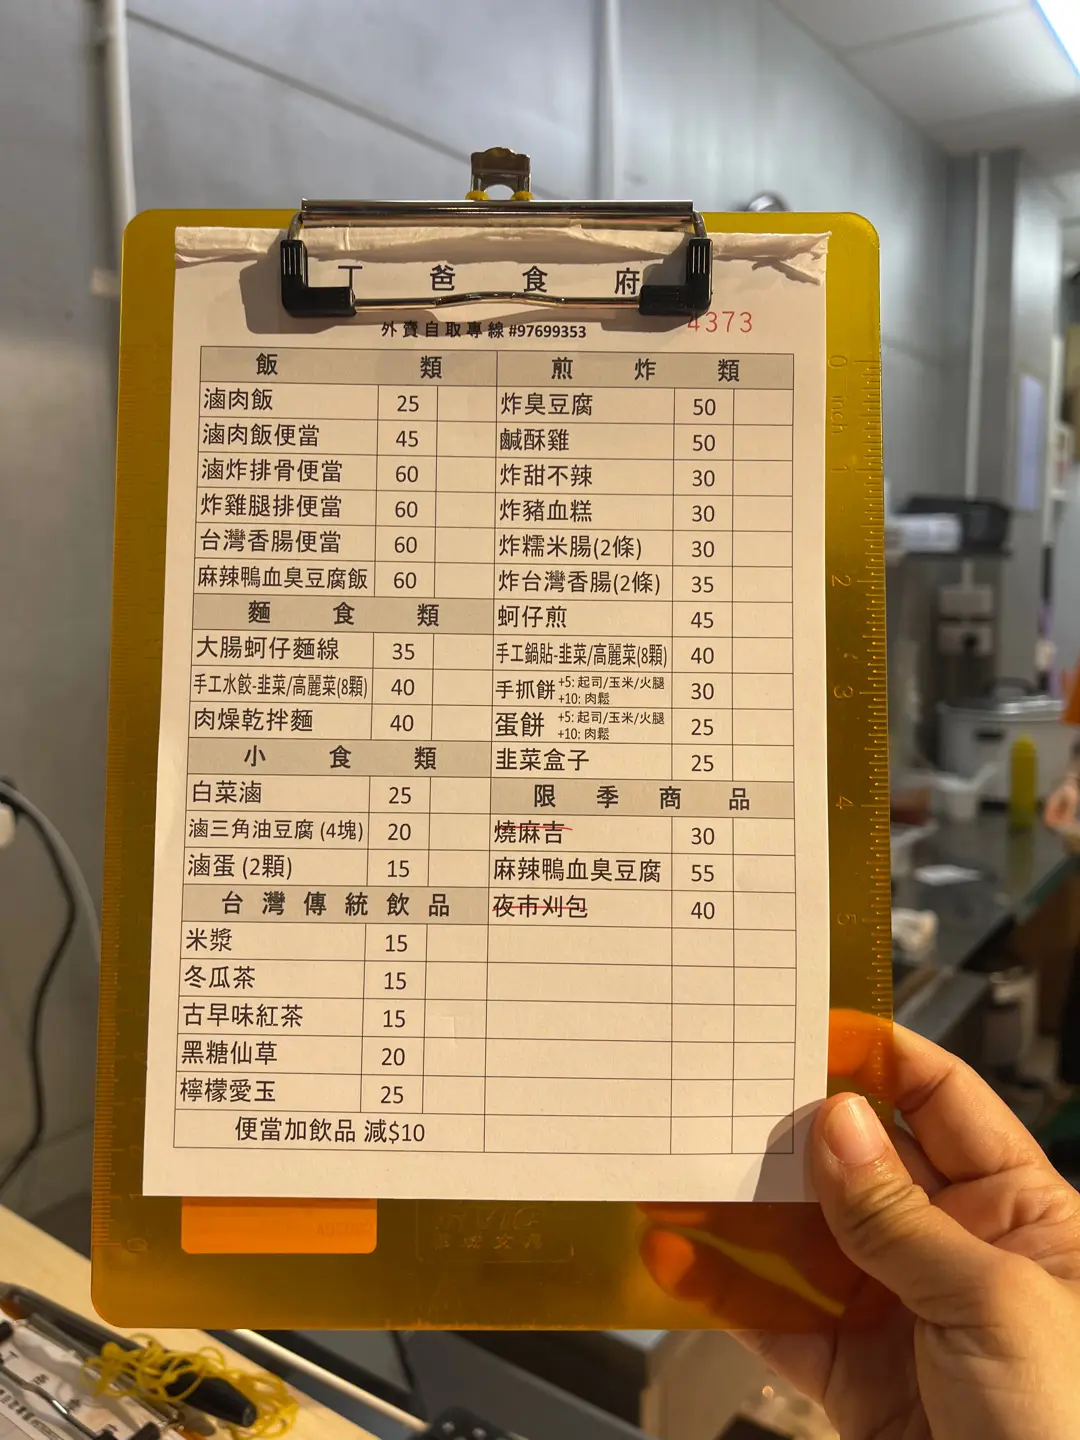 丁爸食府
外賣自取專線#97699353
4373
飯類
滷肉飯 25
滷肉飯便當 45
滷炸排骨便當 60
炸雞腿排便當 60
台灣香腸便當 60
麻辣鴨血臭豆腐飯 60
麵食類
大腸蚵仔麵線 35
手工水餃-韭菜/高麗菜(8顆) 40
肉燥乾拌麵 40
小食類
白菜滷 25
滷三角油豆腐 (4塊) 20
滷蛋 (2顆) 15
台灣傳統飲品
米漿 15
冬瓜茶 15
古早味紅茶 15
黑糖仙草 20
檸檬愛玉 25
便當加飲品 減$10
煎炸類
炸臭豆腐 50
鹹酥雞 50
炸甜不辣 30
炸豬血糕 30
炸糯米腸(2條) 30
炸台灣香腸(2條) 35
蚵仔煎 45
手工鍋貼-韭菜/高麗菜(8顆) 40
手抓餅 +5: 起司/玉米/火腿 30
+10: 肉鬆
蛋餅 +5: 起司/玉米/火腿 25
+10: 肉鬆
韭菜盒子 25
限季商品
燒麻吉 30
麻辣鴨血臭豆腐 55
夜市刈包 40
0 inch 1 2 3 4 5